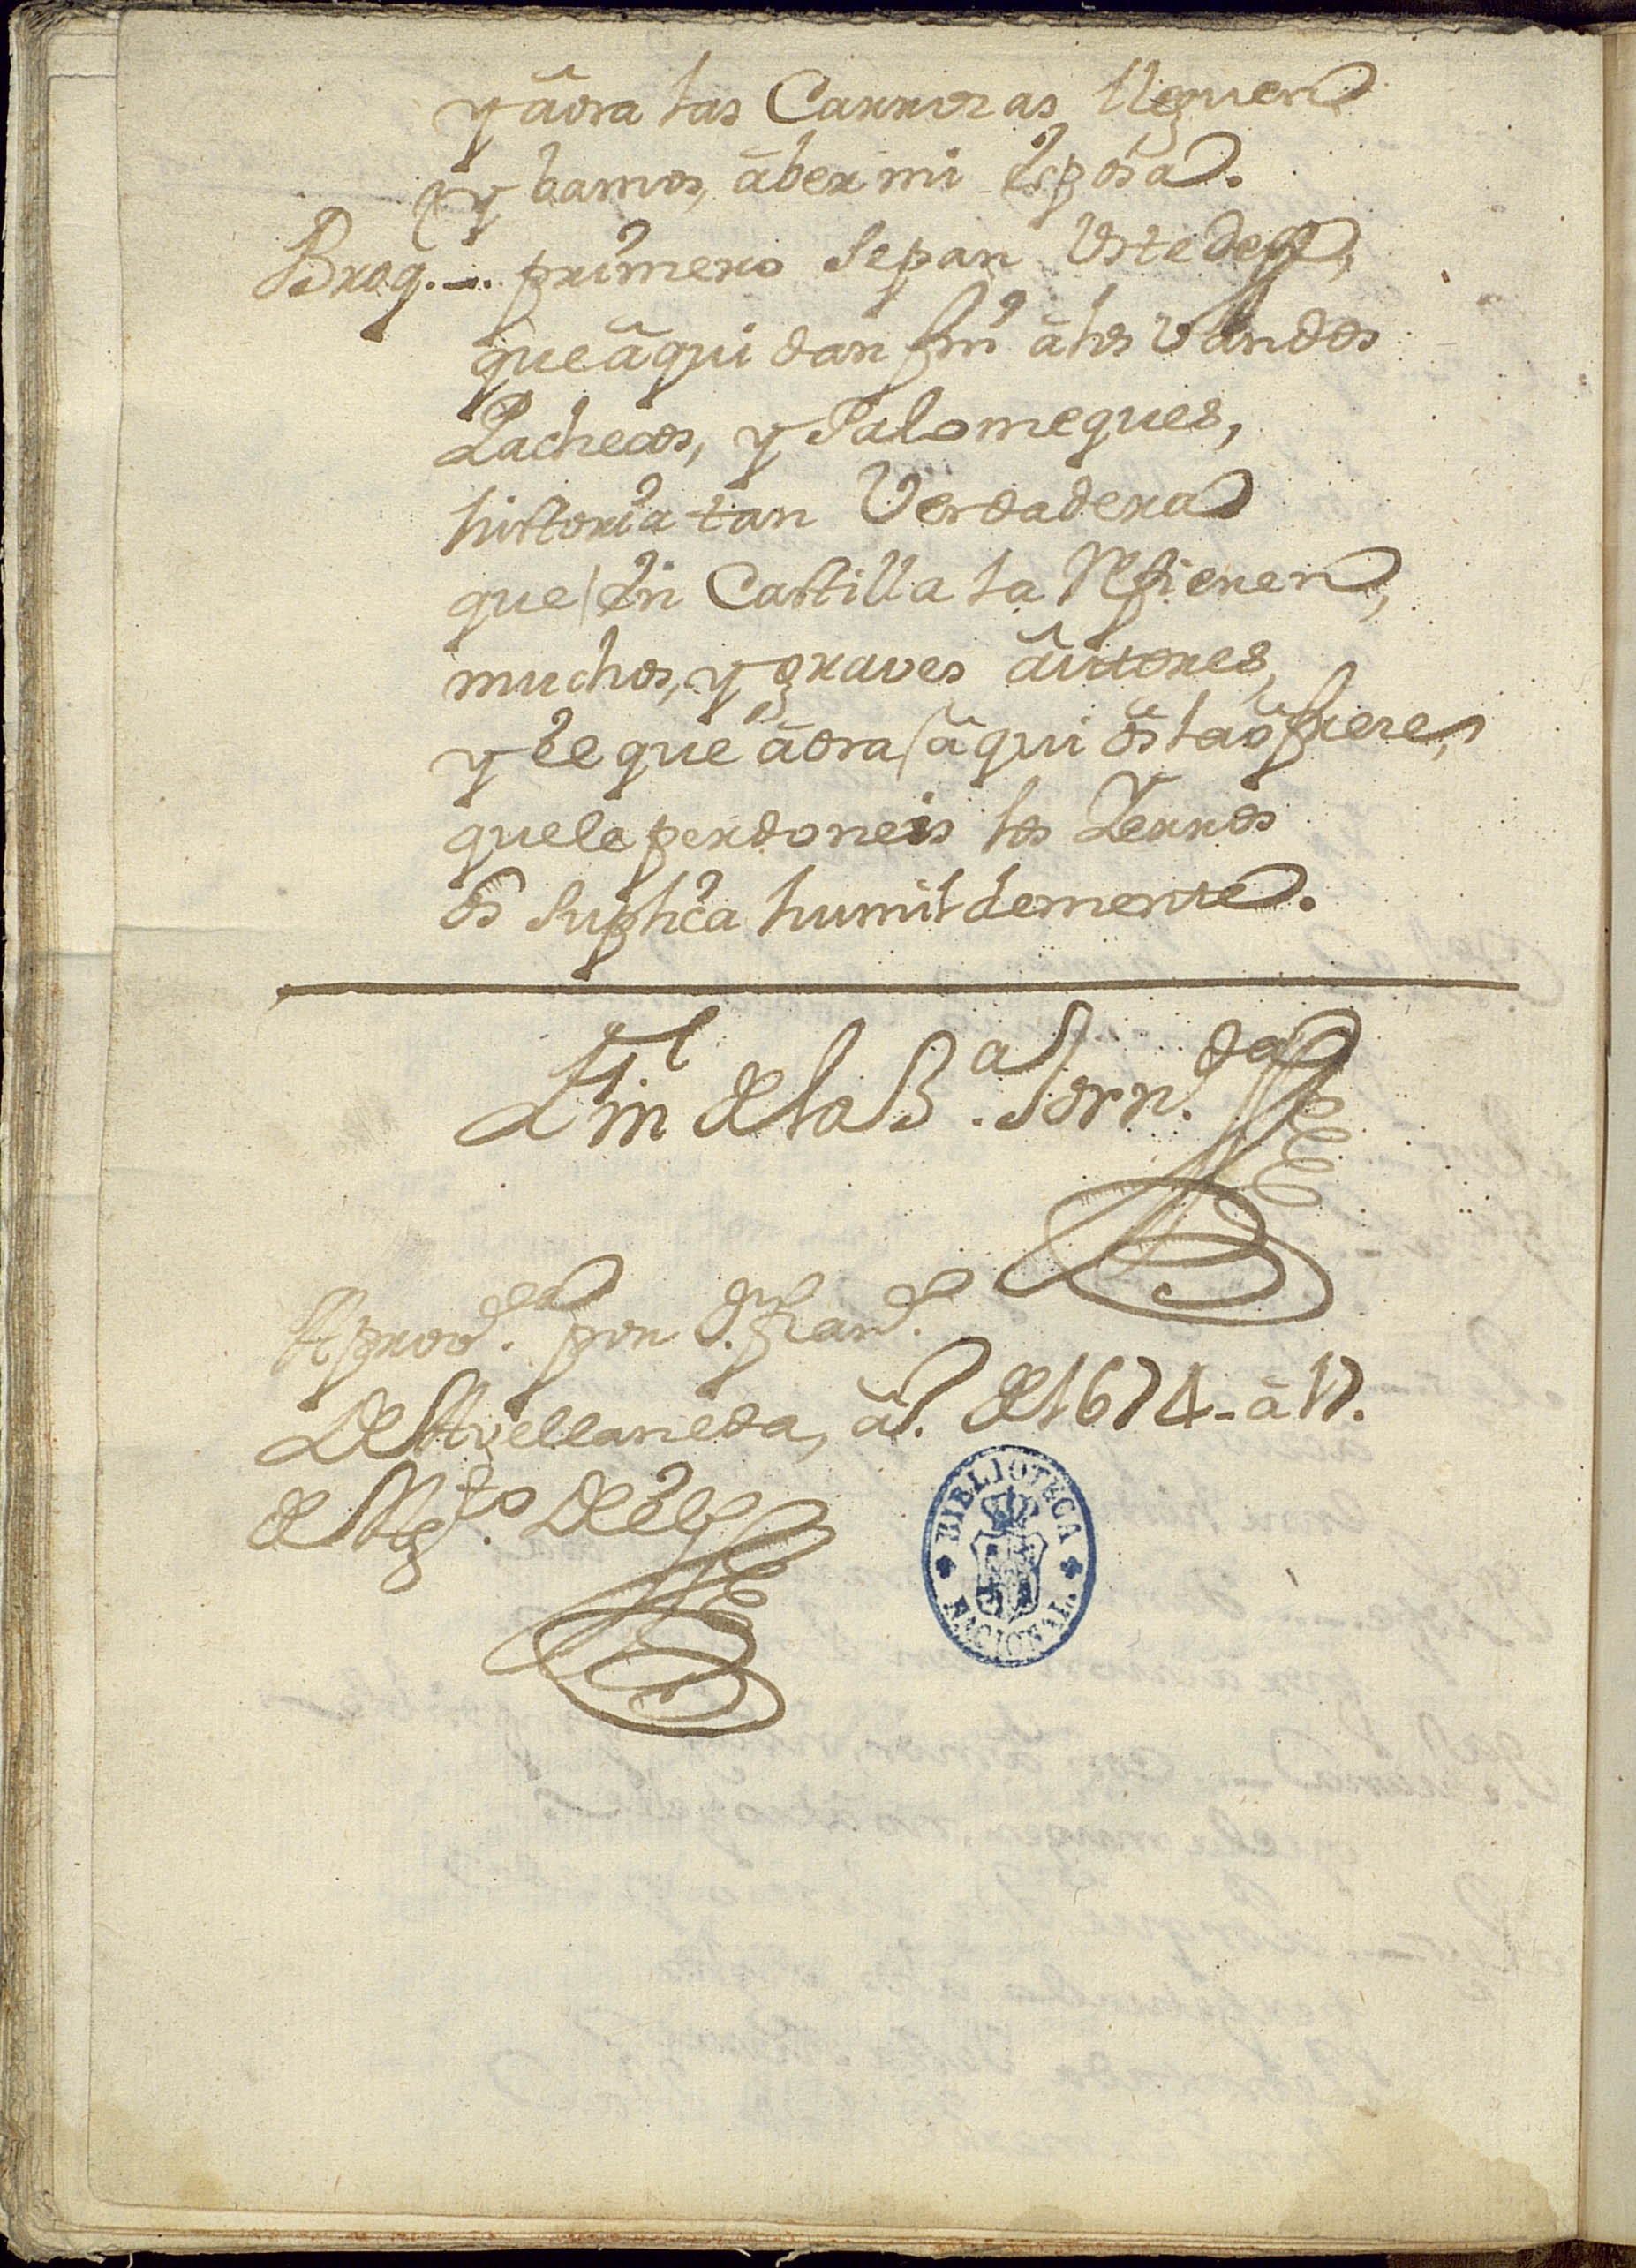 y âora las Carrozas lleguen
y bamos, âber mi Esposa.
Broq. -. primero sepan Ustedes,
que âqui dan fin â los Vandos
Pachecos, y Palomeques,
historia tan Verdadera
que en Castilla la Refieren,
muchos, y graves âutores,
y êl que âora âqui ôs la ôfreze,
que le perdoneis los Yerros
ôs suplica humildemente.
Fin de la 3.ª Jorn.da
Aprov.da por D. Fran.co
De Avellaneda, â. de 1674 - â 17.
de Ag.to De êl
BIBLIOTECA NACIONAL